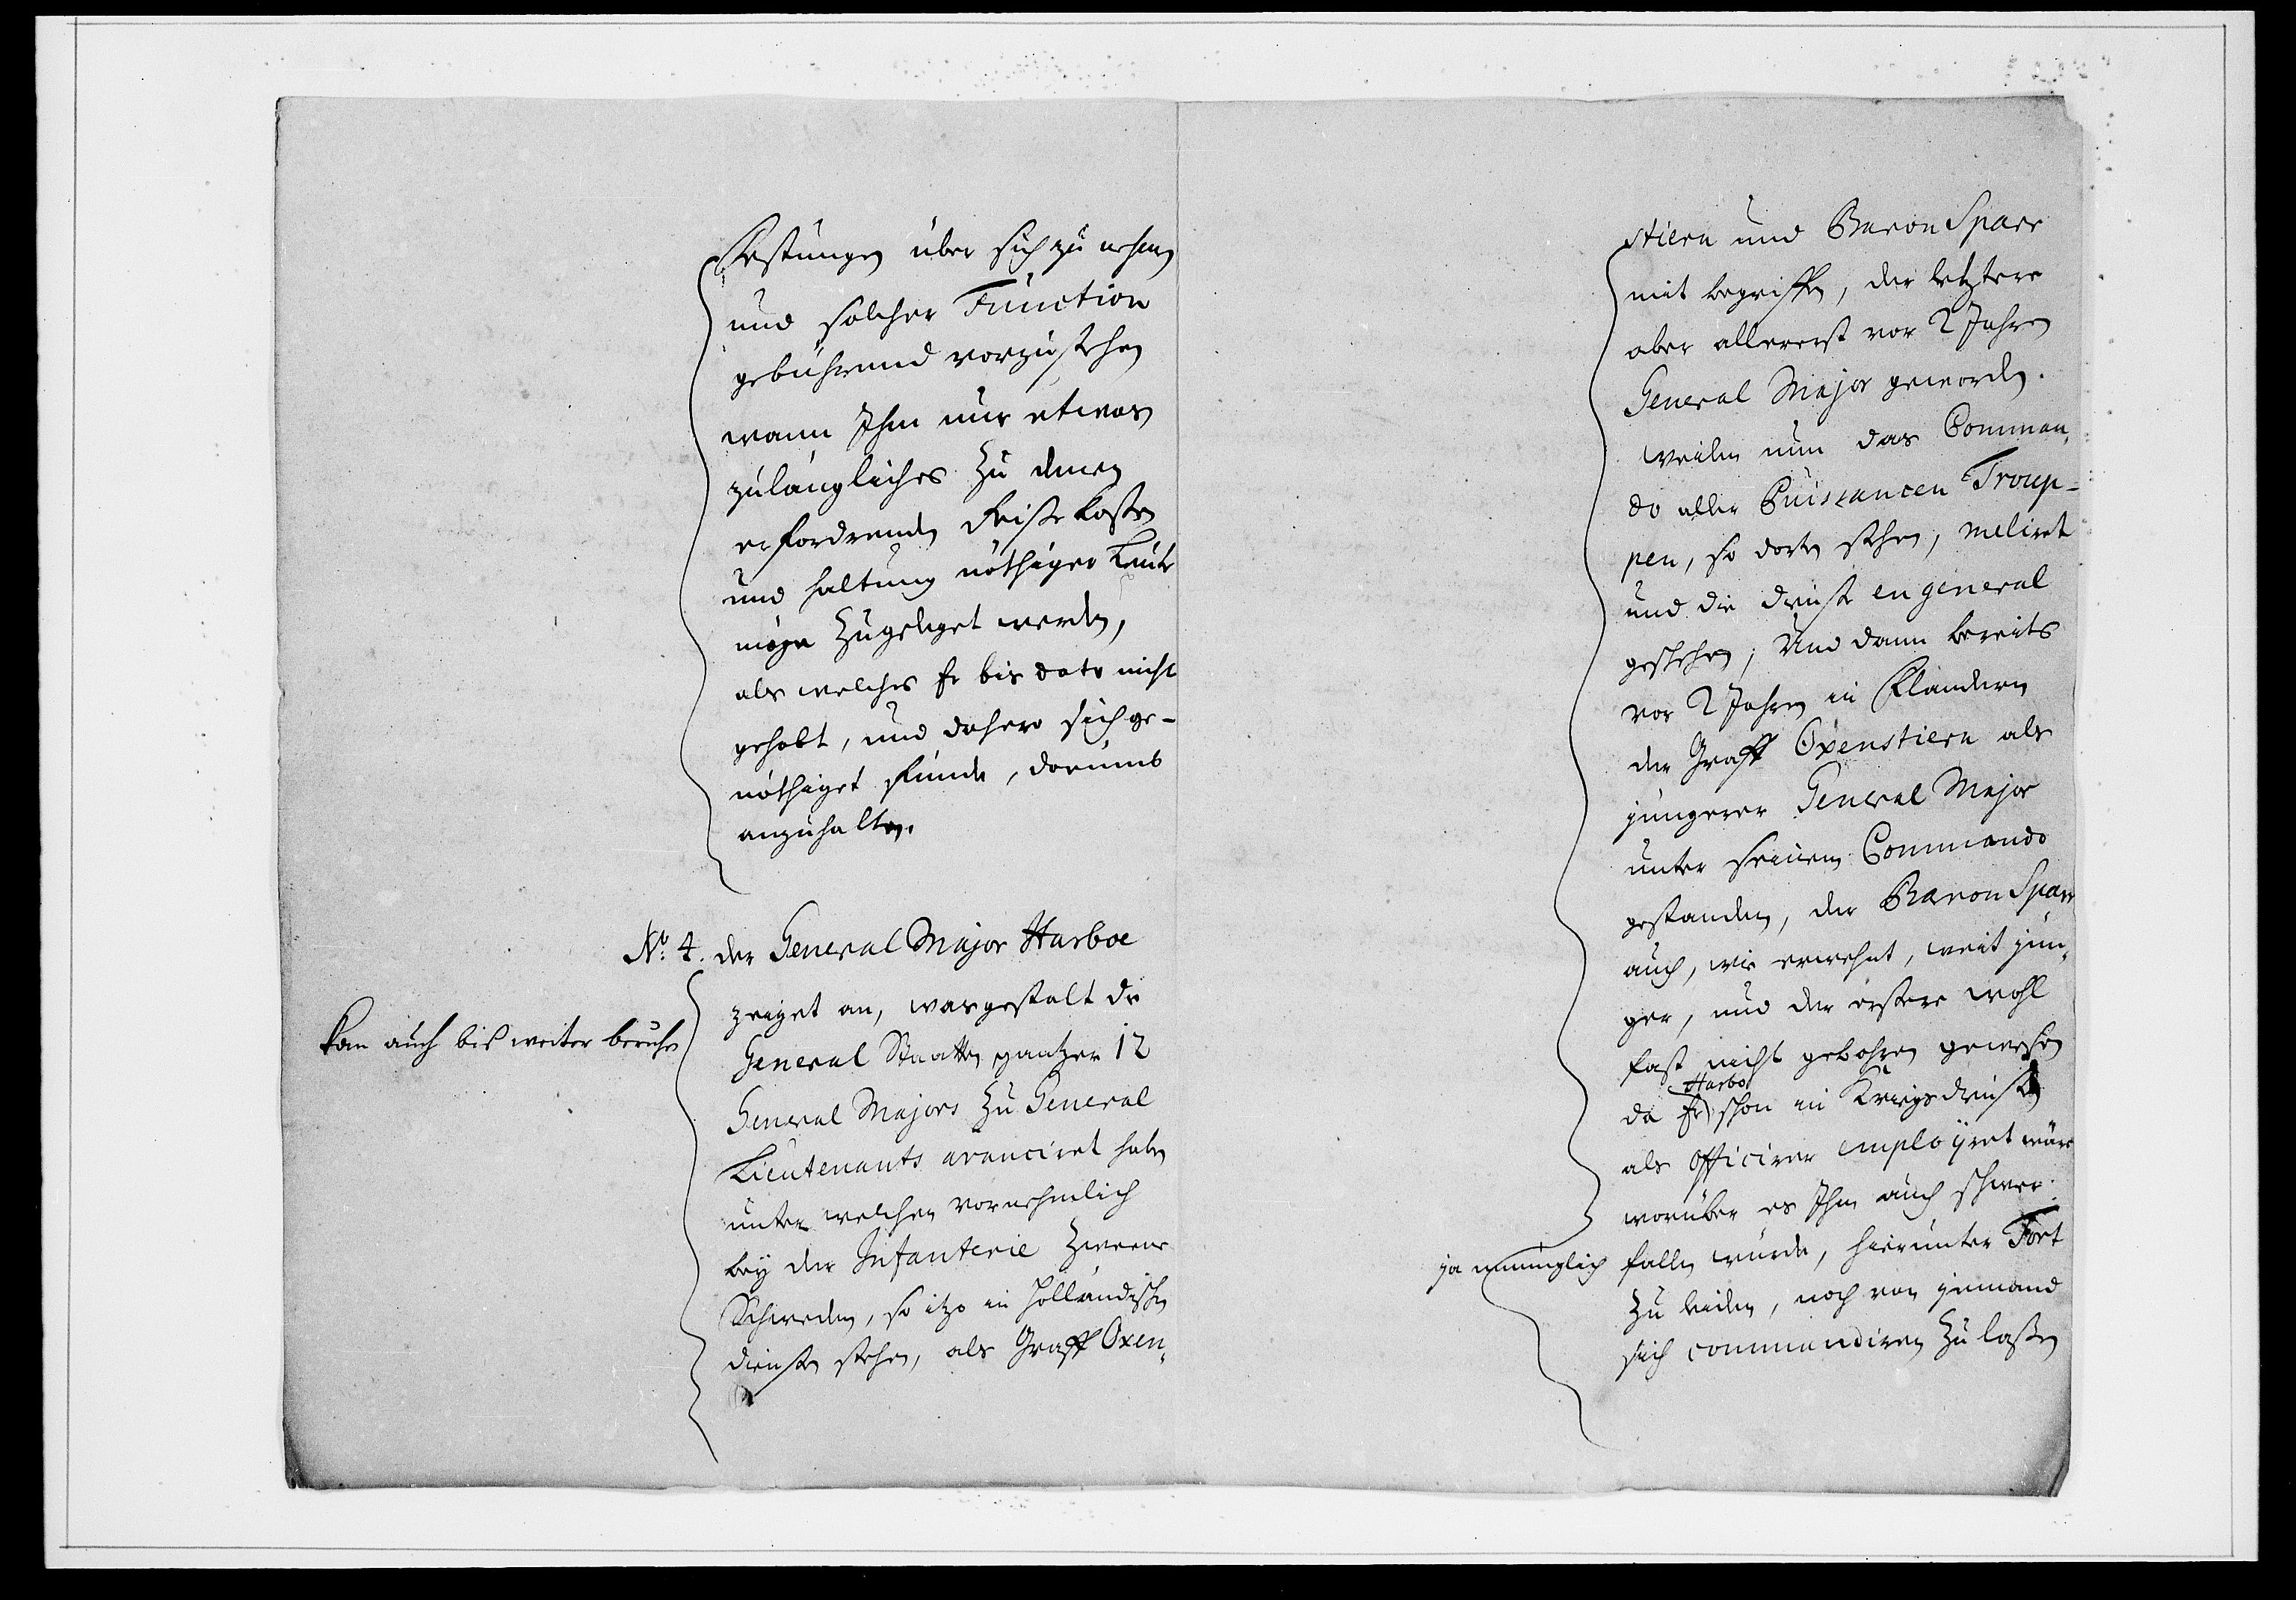 Festungen über sich zu nehmen
und solcher Function
gebührend vorzustehen
wann Ihm nur etwas
zulängliches zu denen
erfordrenden Reise kosten
und haltung nöthiger Leute
möge zugeleget werden,
als welches Er bis dato nicht
gehabt, und dahero sich ge-
nöthiget finde, darumb
anzuhalten.
No. 4. der General Major Harboe
zeiget an, wasgestalt die
General Staaten gantzer 12
General Majors zu General
Lieutenants avanciret haben
unter welchen vornehmlich
bey der Infanterie zweene
Schweden, so itzo in Holländischen
diensten stehen, als Graff Oxen,
kan auch biß weiter beruhen
stiern und Baron Sparr
mit begriffen, der letztere
aber allererst vor 2 Jahren
General Major geworden.
Weilen nun das Comman,
do aller Puissancen Troup-
pen, so dorten stehen, meliret
und die dienste en general
geschehen; Und dann bereits
vor 2 Jahren in Flandern
der Graff Oxenstiern als
jüngerer General Major
unter seinem Commando
gestanden, der Baron Sparr
auch, wie erwehnt, weit jün,
ger, und der erstere wohl
fast nicht gebohren gewesen
Harbo
da Er schon in Kriegsdiensten
als Officirer employret wäre
worüber es Ihm auch schwer
ja unmüglich fallen würde, hierunter Tort
zu leiden, noch von jemand
sich commandiren zu laßen